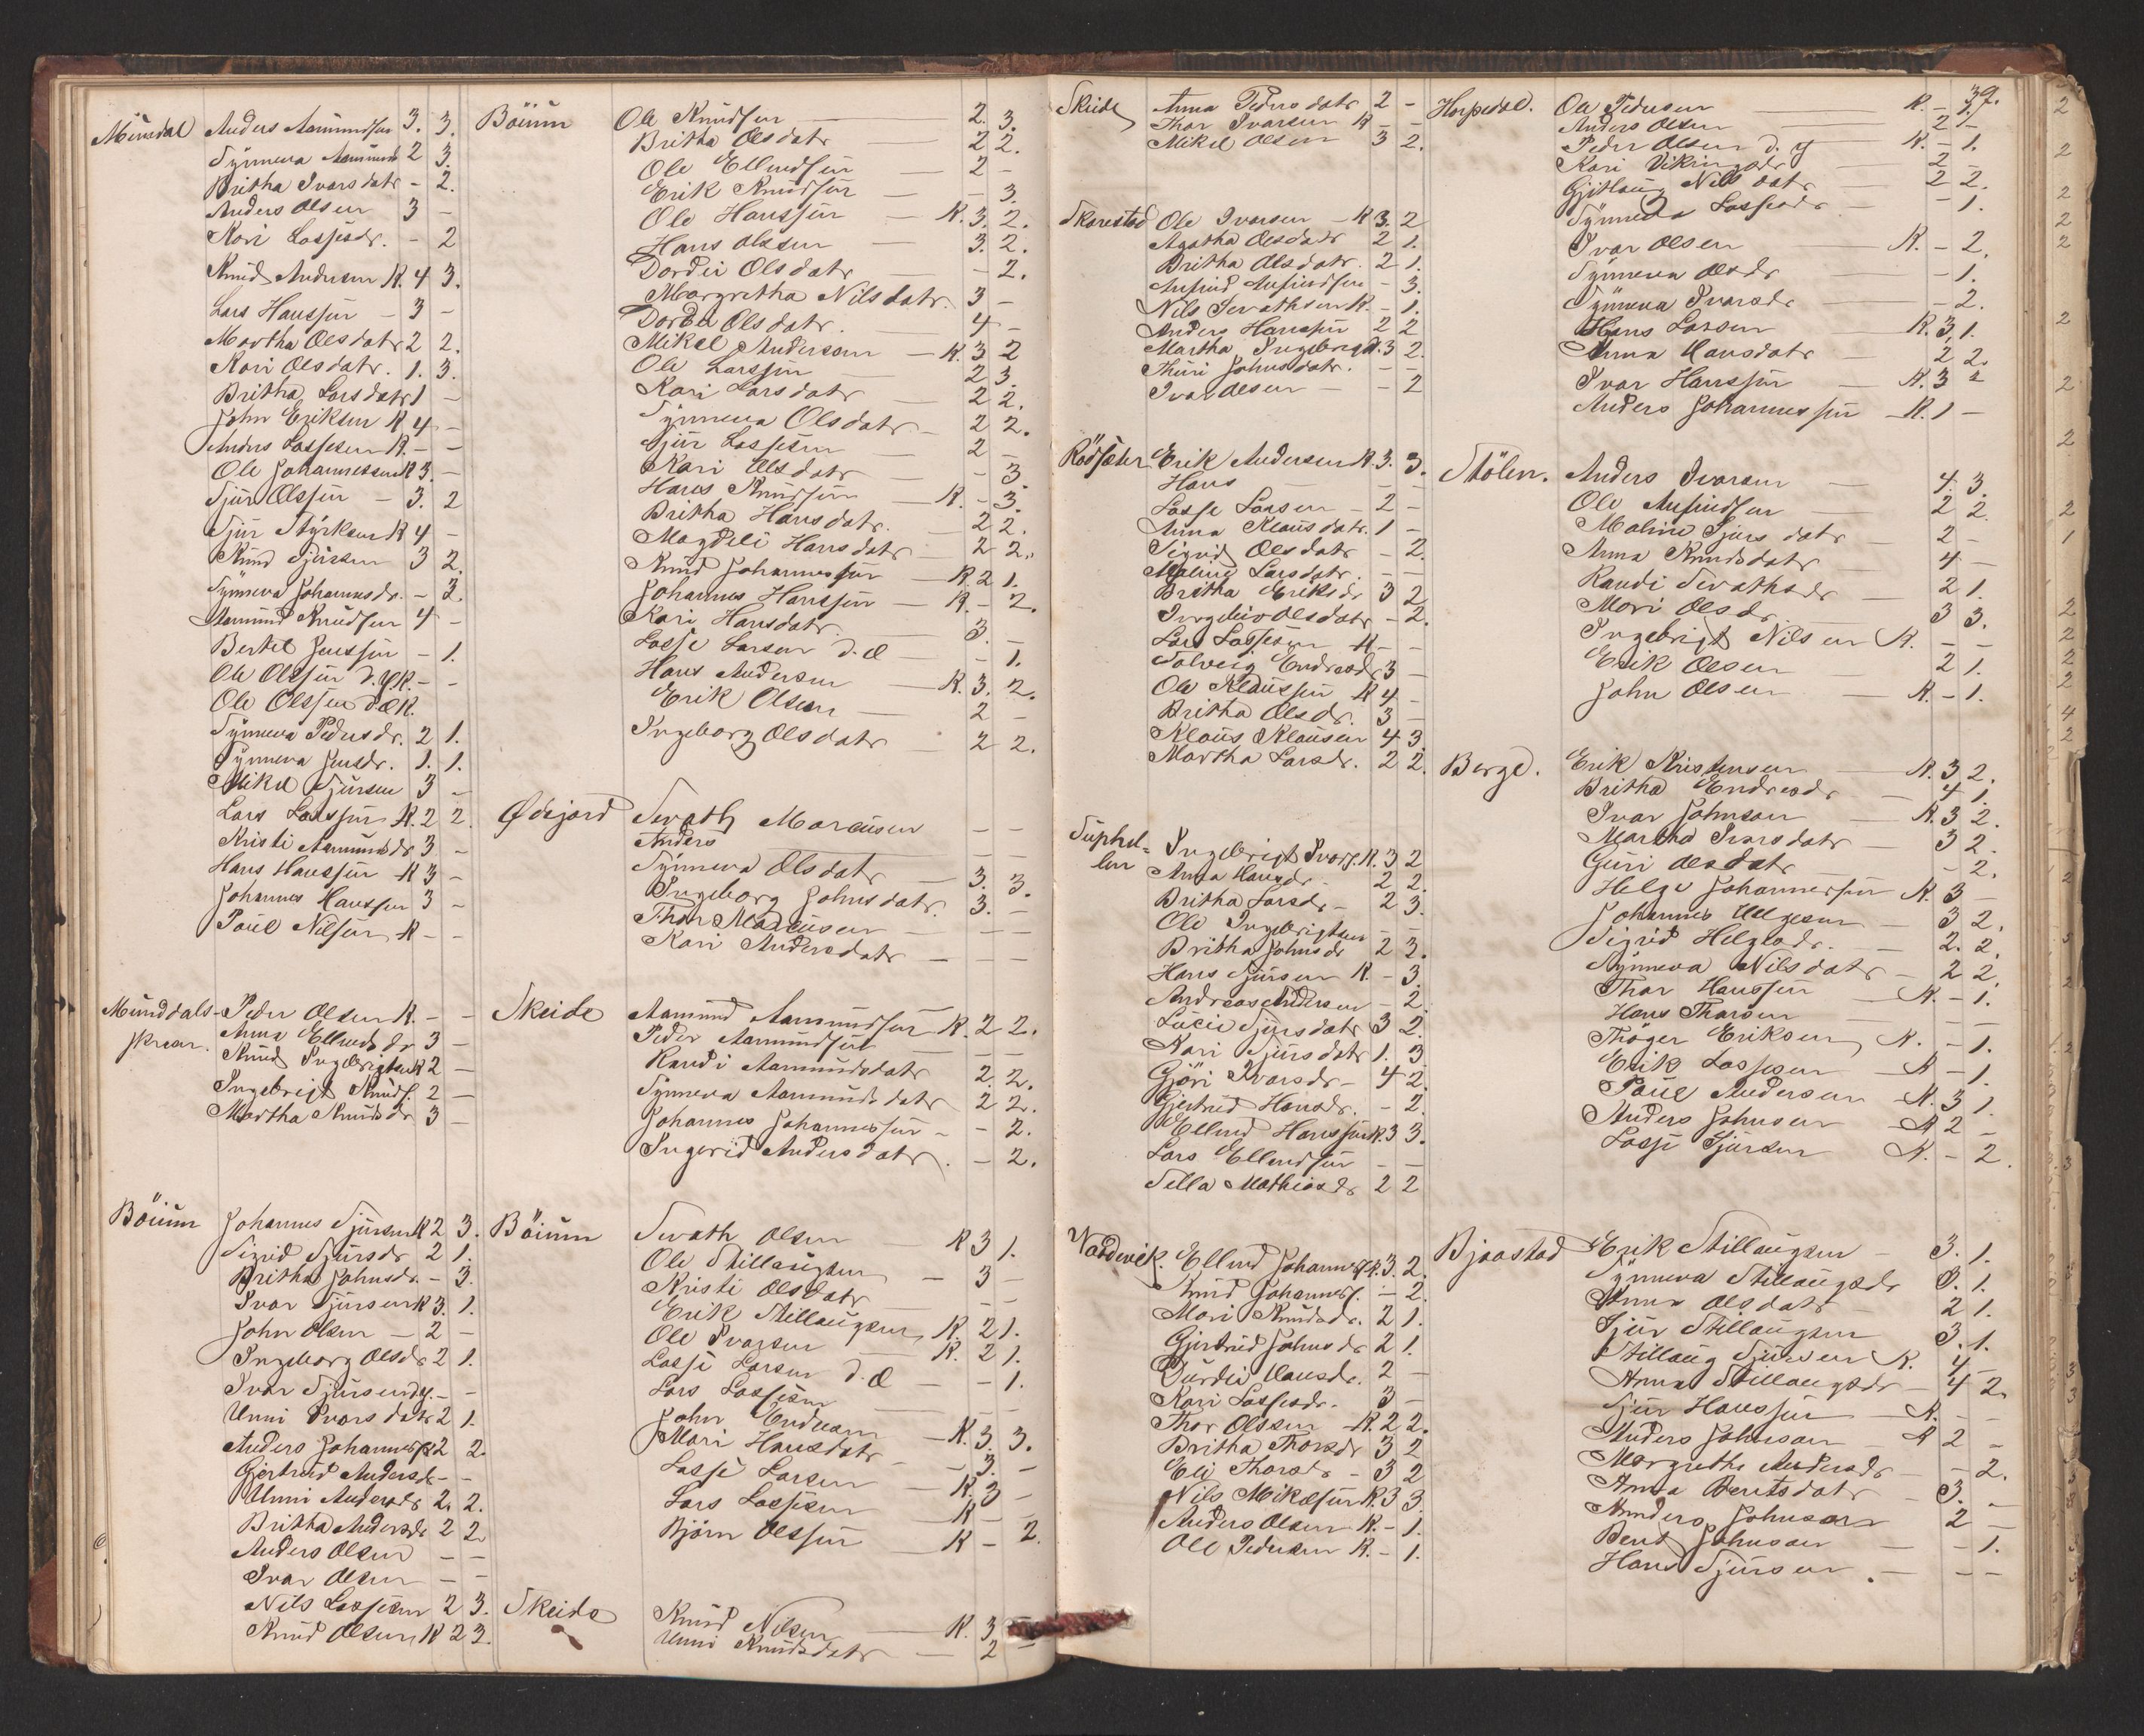 Mundal Anders Aamundsen 3. 3.
Synneva Aamunds 2 3.
Britha Ivarsdatr - 2.
Anders Olsen 3 -
Kari Lassesdr. - 2
Knud Andersen K. 4 3.
Lars Hanssen - 3 -
Martha Olsdatr 2 2.
Kari Olsdatr. 1. 3.
Britha Larsdatr 1 -
John Eriksen K 4 -
Anders Lassesen K. - -
Ole Johannessen K 3. -
Sjur Olssen - 3. 2
Sjur Styrksen K 4 -
Knud Sjursen 3 2.
Synneva Johannesdr. - 3.
Aamund Knudsen 4 -
Bertel Jenssen - 1.
Ole Olssen d.y K. - -
Ole Olssen d. æ K.
Synneva Pedersdr. 2 1.
Synneva Jensdr. 1. 1.
Mikel Sjursen 3 -
Lars Larssen K. 2 2.
Kristi Aamundsdr 3 -
Hans Hanssen K 3 -
Johannes Hanssen 3 -
Poul Nilsen K - -
Munddals- Peder Olsen K. - -
skrear. Anna Ellendsdr 3 -
Knud Ingebrigtsen K 2 -
Ingebrigt Knuds. 2 -
Martha Knudsdr 3 -
Böium Johannes Sjursen K 2 3.
Sigrid Sjursdr 2 1.
Britha Johnsdr. - 3.
Ivar Sjursen K 3. 1.
John Olsen - 2 -
Ingeborg Olsdr 2 1.
Ivar Sjursen d.y. - -
Unni Ivarsdatr 2 1.
Anders Johannes. K 2 2.
Gjertrud Andersdr - -
Unni Andersdr 2. 2.
Britha Andersdr 2 2.
Anders Olsen - -
Ivar Olsen - -
Nils Lassesen 2 3.
Knud Olsen K 2 3.
Böium Ole Knudsen - 2. 3.
Britha Olsdatr 2 2.
Ole Ellendsen - 2 -
Erik Knudsen - 3.
Ole Hanssen - K. 3. 2.
Hans Olssen - 3. 2.
Dordei Olsdatr - 2.
Margretha Nilsdatr. 3 -
Dordei Olsdatr. 4 -
Mikel Andersen - K. 3 2
Ole Larssen 2 3.
Kari Larsdatr - 2 2.
Synneva Olsdatr - 2 2.
Sjur Lassesen 2 -
Kari Olsdatr - 3.
Hans Knudsen - K. - 3.
Britha Hansdatr. - 2 2.
Magdeli Hansdatr - 2 2.
Knud Johannessen - K. 2 1.
Johannes Hanssen - K. - 2.
Kari Hansdatr 3. -
Lasse Larsen d. æ - - 1.
Hans Andersen - K. 3. 2.
Erik Olsen - 2 -
Ingeborg Olsdatr - 2 2.
Ødejord Sevath Marcusen - -
Anders - -
Synneva Olsdatr - 3. 3.
Ingeborg Johnsdatr. 3. -
Thor Marcusen - - -
Kari Andersdatr - - -
Skeide Aamund Aamundsen K. 2 2.
Peder Aamundsen - -
Randi Aamundsdatr 2. 2.
Synneva Aamundsdatr 2 2.
Johannes Johannessen - - 2.
Ingerid Andersdatr. - 2.
Böium Sevath Olsen K 3 1.
Ole Stillaugsen - 3 -
Kristi Olsdatr - -
Erik Stillaugsen K. 2 1.
Ole Ivarsen - K. 2 1.
Lasse Larsen d. æ - - 1.
Lars Lassesen - -
John Endresen - K. 3. 3.
Mari Hansdatr - 3. -
Lasse Larsen - K. 3 -
Lars Lassesen K - -
Björn Olssen - K - 2.
Skeide Knud Nilsen - K. 3 -
Unni Knudsdatr - 2 -
39.
Skeide Anna Pedersdatr 2 -
Thor Ivarsen K - -
Mikel Olsen 3 2.
Skarestad Ole Ivarsen - K 3. 2
Agatha Olsdatr 2 1.
Britha Olsdatr. 2 1.
Ansiend Ansiendsen - 3.
Nils Sevathsen K. - 1.
Anders Hanssen 2 2
Martha Ingebrigd. 3 2.
Thuri Johnsdatr. - -
Ivar Olsen - - 2
Rödsæter Erik Andersen K. 3. 3.
Hans - -
Lasse Larsen - 2 -
Anna Klausdatr. 1 -
Sigrid Olsdatr - 2.
Maline Larsdatr. - -
Britha Eriksdr 3 2
Ingebor Olsdatr - 2.
Lars Lassesen K - -
Solveig Endresdr 3 -
Ole Klaussen K 4 -
Britha Olsdr. 3 -
Klaus Klausen 4 3.
Martha Larsdr. 2 2.
Suphel- Ingebrigt Ivars. K. 3 2
len Anna Hansdr. 2 2.
Britha Larsdr - 2 3.
Ole Ingebrigtsen - -
Britha Johnsdr 2 2.
Hans Sjursen K. - 3.
Andreas Andersen - 2.
Lucie Sjursdatr 3 2.
Kari Sjursdatr 1. 3
Gjöri Ivarsdr - 4 2.
Gjertrud Hansdr. - 2.
Ellend Hanssen K. 3 3.
Lars Ellendsen - -
Sella Mathiasdr 2 2
Vatdevik. Ellend Johannes. K. 3. 2.
Knud Johannes. - 2.
Mari Knudsdr. 2 1.
Gjertrud Johnsdr 2 1.
Durdei Hansdr. 2 -
Kari Lassesdr. 3 -
Thor Olssen - K. 2 2.
Britha Thorsdr 3 2
Eli Thorsdr - 3 2
Nils Mikelsen K. 3 3
Anders Olsen K. - 1.
Ole Pedersen K. - 1.
Horpedal. Ole Pedersen - K. - 3.
Anders Olsen - 2 -
Peder Olsen d. y - K. - 1.
Kari Vikingsdr 2 -
Gjitlaug Nilsdatr - 2 2.
Synneva Lassesdr - - 1.
Ivar Olsen - K. - 2.
Synneva Olsdr - 1.
Synneva Ivarsdr - - 2.
Hans Larsen K. 3, 1.
Anna Hansdatr - 2 2.
Ivar Hanssen - K. 3 2
Anders Johannessen - K. 1 -
Stölen. Anders Ivarsen - 4. 3.
Ole Ansiendsen - 2 2.
Maline Sjursdatr - 2 -
Anna Knudsdatr - 4 -
Randi Sevathsdr - 2 1.
Mari Olsdr. 3 3.
Ingebrigt Nilsen K. - -
Erik Olsen 2 1.
John Olsen - K. - 1.
Berge. Erik Kristensen - K. 3 2.
Britha Endresdr - 4 1.
Ivar Johnsen - K. 3 2.
Martha Ivarsdatr 3 2.
Guri Olsdatr - - 2.
Helge Johannessen K. 3 -
Johannes Helgesen - 3 2.
Sigrid Helgesdr. - 2. 2.
Synneva Nilsdatr - 2 2.
Thor Hanssen - K. - 1.
Hans Thorsen - -
Thöger Eriksen K. - 1.
Erik Lassesen - K - 1.
Poul Andersen - K. 3 1.
Anders Johnsen - K 2 -
Lasse Sjursen K. - 2.
Bjaastad Erik Stillaugsen - 3. 1.
Synneva Stillaugsdr 3. 1.
Anna Olsdatr - 2 1.
Sjur Stillaugsen 3. 1.
Stillaug Sjursen K. 4 -
Anna Stillaugsdr - 4 2.
Sjur Hanssen - K. - -
Anders Johnsen - K 2 -
Margrethe Andersdr - - 2.
Anna Bentsdatr - 3. -
Anders Johnsen 2 -
Bent Johnsen - - 1.
Hans Sjursen. - - -